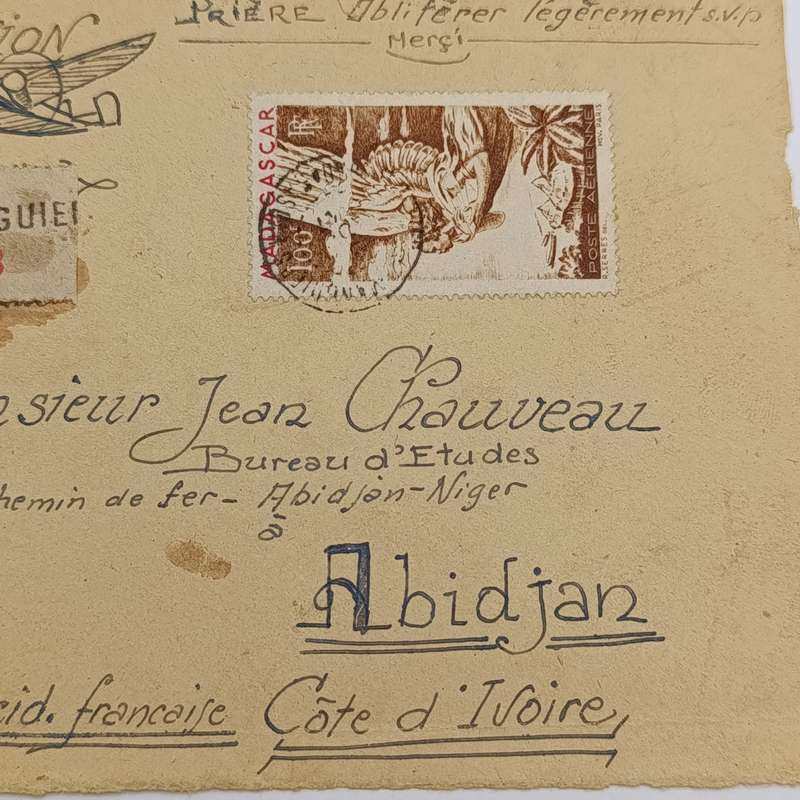 PRIÈRE Abliférer légèrement s.v.p
Merçi
ION
MADAGASCAR
100F
RF
POSTE AÉRIENNE
R. SERRES DEL.
HÉLIO. PARIS
GUIEI
nsieur Jean Chauveau
Bureau d'Etudes
hemin de fer - Abidjan-Niger
à
Abidjan
cid. francaise Côte d'Ivoire,